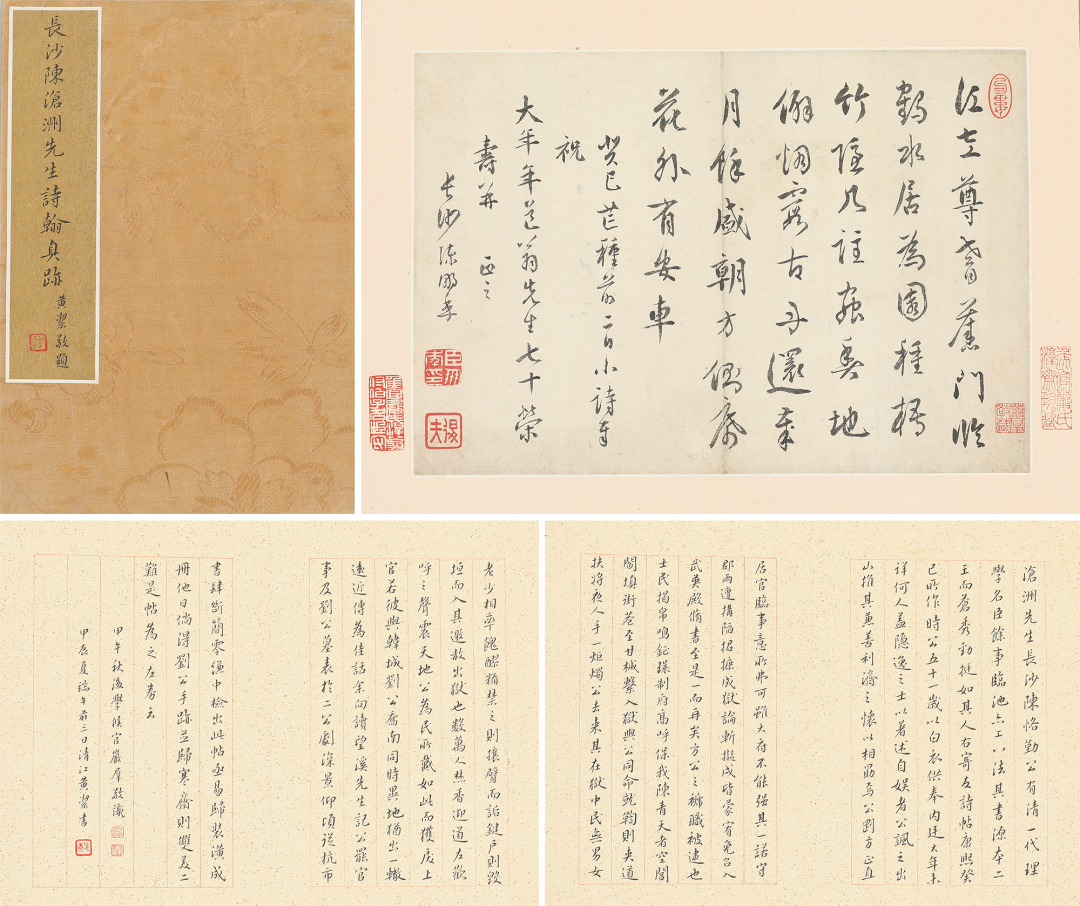 長沙陳滄洲先生詩翰真跡
黃絜敬題
江上尊耆舊門臨
鶴水居為園種橘
竹隱几註蟲魚地
僻烟霞古身還歲
月餘盛朝方側席
花外有安車
癸巳芒種前二日小詩奉
祝
大年年道翁先生七十榮
壽并 正之
長沙陳鵬年
滄洲先生長沙陳恪勤公有清一代理
學名臣餘事臨池亦工八法其書源本二
王而蒼秀勁挺如其人右寄友詩帖康熙癸
巳所作時公五十一歲以白衣供奉內廷大年未
詳何人蓋隱逸之士以著述自娛者公諷之出
山推其兼善利濟之懷以相勗焉公剛方正直
居官臨事意所弗可雖大府不能強其一諾守
郡兩遭搆陷捃摭成獄論斬擬戍皆蒙宥免召入
武英殿脩書至是一而再矣方公之褫職被逮也
士民揭帛鳴鉦環制府高呼保我陳青天者空閭
閻填街巷至甘械繫入獄與公同命就鞫則夾道
扶將夜人手一炬燭公去來其在獄中民無男女
老少相率餽醪糈禁之則攘臂而詬鍵戶則毀
垣而入其邀赦出獄也數萬人焚香迎道左歡
呼之聲震天地公為民所戴如此而獲戾上
官若彼與韓城劉公喬南同時異地猶出一轍
遠近傳為佳話余向讀望溪先生記公罷官
事及劉公墓表於二公劇深景仰頃從杭市
書肆斷簡零縑中檢出此帖亟易歸裝潢成
冊他日倘得劉公手跡並歸寒齋則雙美二
難是帖為之左券云
甲午秋後學侯官嚴羣敬識
甲辰夏端午前二日清江黃絜書